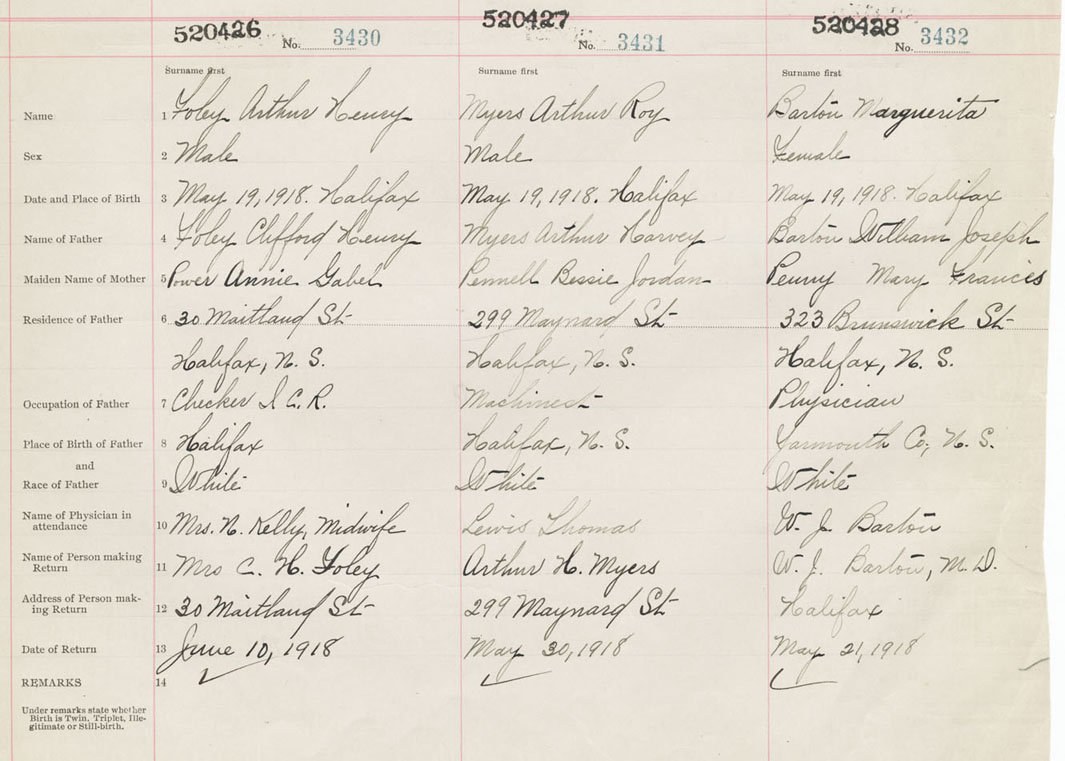 520426 520427 520428
No. 3430 No. 3431 No. 3432
Surname first Surname first Surname first
Name 1 Foley Arthur Henry Myers Arthur Roy Barton Marguerita
Sex 2 Male Male Female
Date and Place of Birth 3 May 19, 1918. Halifax May 19, 1918. Halifax May 19, 1918. Halifax
Name of Father 4 Foley Clifford Henry Myers Arthur Harvey Barton William Joseph
Maiden Name of Mother 5 Power Annie Gabel Pennell Bessie Jordan Penny Mary Francis
Residence of Father 6 30 Maitland St 299 Maynard St 323 Brunswick St
Halifax, N. S. Halifax, N. S. Halifax, N. S.
Occupation of Father 7 Checker I. C. R. Machinest Physician
Place of Birth of Father 8 Halifax Halifax, N. S. Yarmouth Co., N. S.
and
Race of Father 9 White White White
Name of Physician in
attendance 10 Mrs. N. Kelly, Midwife Lewis Thomas W. J. Barton
Name of Person making
Return 11 Mrs C. H. Foley Arthur H. Myers W. J. Barton, M. D.
Address of Person mak-
ing Return 12 30 Maitland St 299 Maynard St Halifax
Date of Return 13 June 10, 1918 May 30, 1918 May 21, 1918
REMARKS 14
Under remarks state whether
Birth is Twin, Triplet, Ille-
gitimate or Still-birth.